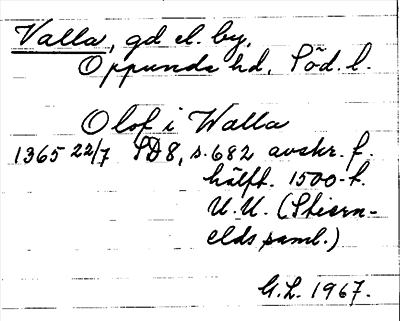 Valla, gd el. by,
Oppunda hd, Söd. l.
Olof i Walla
1365 22/7 SD 8, s. 682 avskr. f.
hälft. 1500-t.
U.U. (Stiern-
elds saml.)
G.L. 1967.